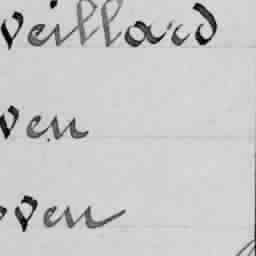 veillard
ven
ven